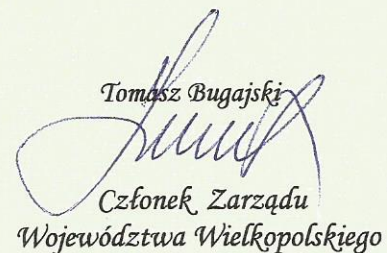 Tomasz Bugajski
Członek Zarządu
Województwa Wielkopolskiego